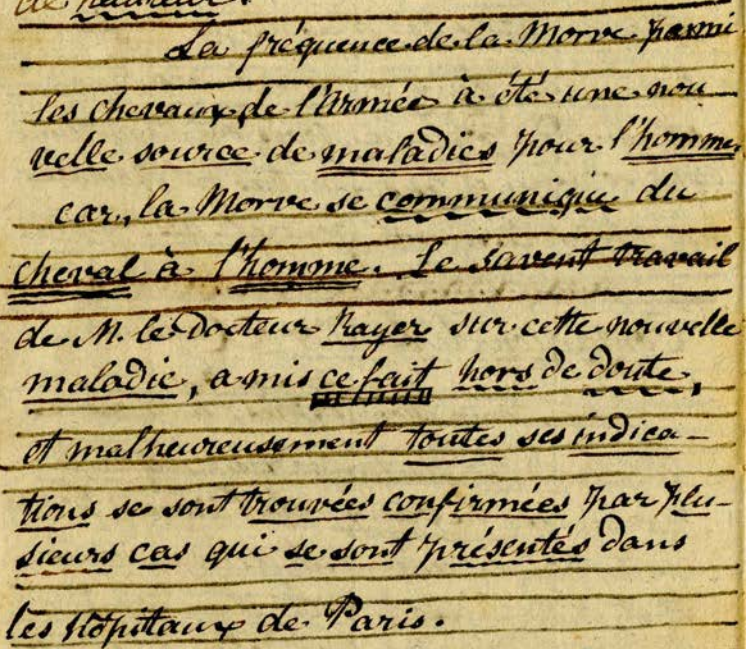 La fréquence de la Morve parmi
les chevaux, de l'Armée à été une nou
velle source de maladies pour l'homme,
car, la Morve se communique du
cheval à l'homme. Le savent travail
de M. le Docteur Rayer sur cette nouvelle
maladie, a mis ce fait hors de doute,
et malheureusement toutes ses indica-
tions se sont trouvées confirmées par plu-
sieurs cas qui se sont présentés dans
les hôpitaux de Paris.